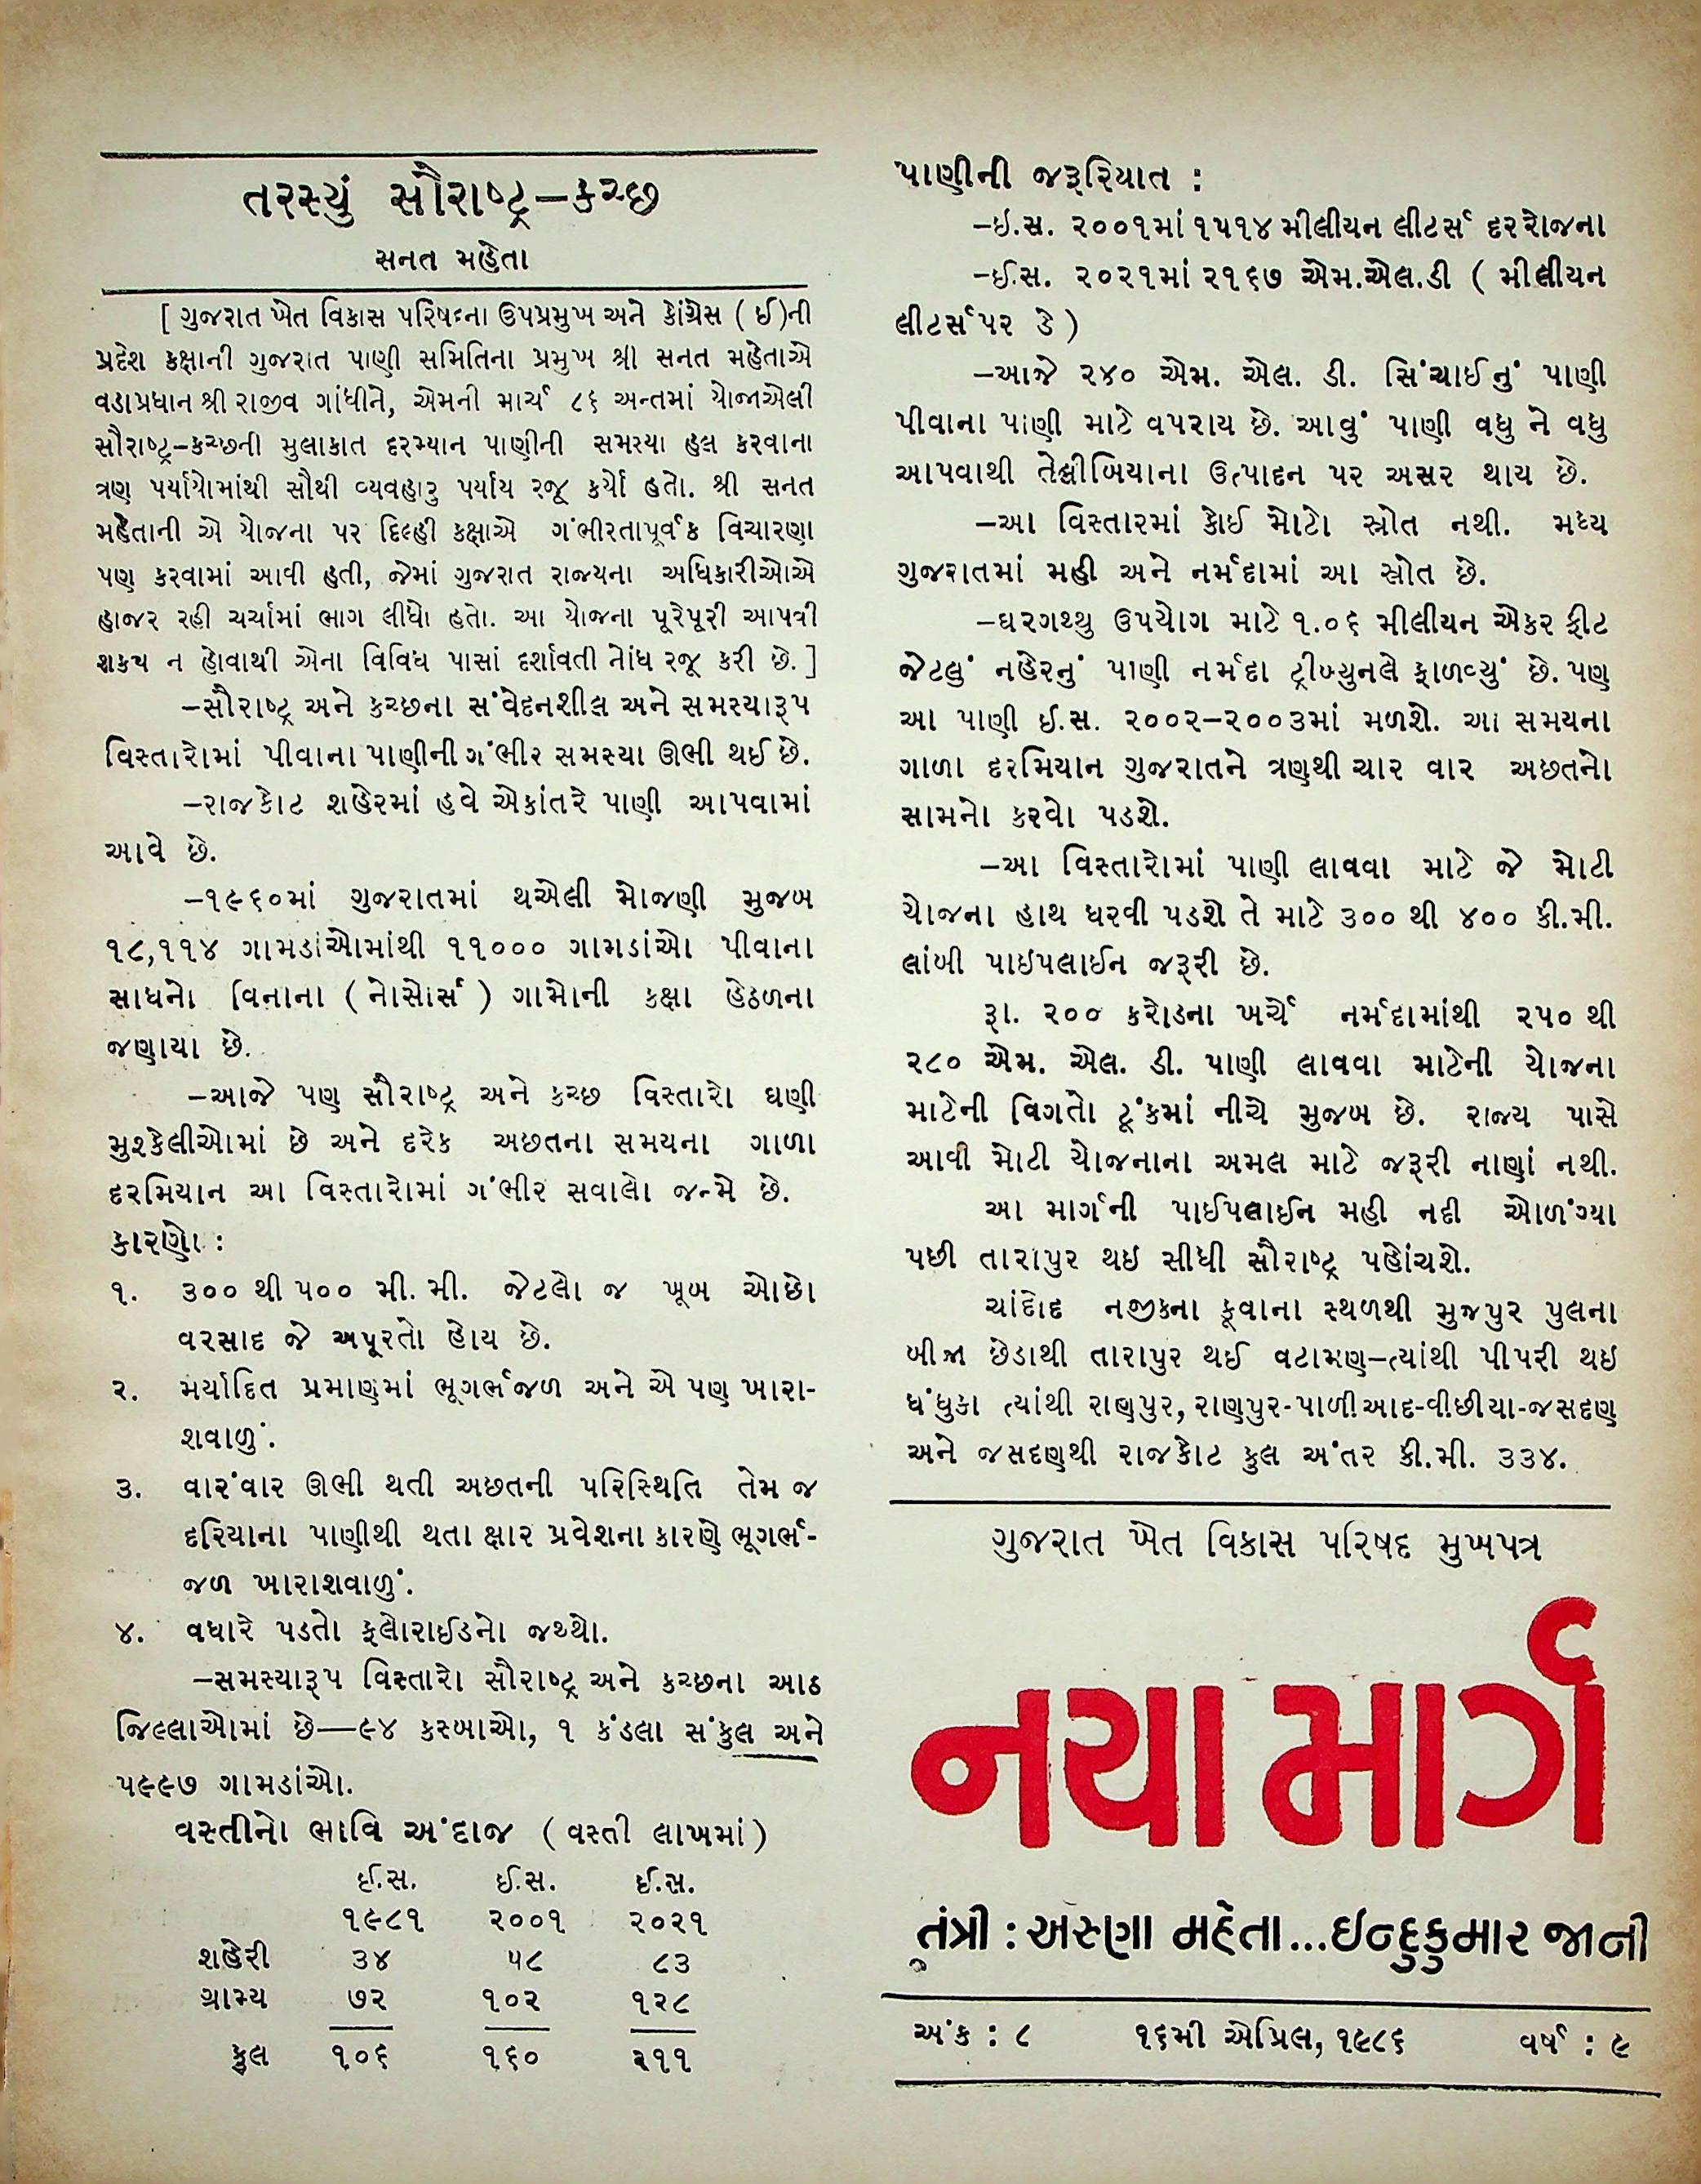 તરસ્યું સૌરાષ્ટ્ર–કચ્છ
સનત મહેતા
[ ગુજરાત ખેત વિકાસ પરિષદના ઉપપ્રમુખ અને કોંગ્રેસ ( ઈ )ની
પ્રદેશ કક્ષાની ગુજરાત પાણી સમિતિના પ્રમુખ શ્રી સનત મહેતાએ
વડાપ્રધાન શ્રી રાજીવ ગાંધીને, એમની માર્ચ ૮૬ અન્તમાં યોજાએલી
સૌરાષ્ટ્ર–કચ્છની મુલાકાત દરમ્યાન પાણીની સમસ્યા હલ કરવાના
ત્રણ પર્યાયોમાંથી સૌથી વ્યવહારુ પર્યાય રજૂ કર્યો હતો. શ્રી સનત
મહેતાની એ યોજના પર દિલ્હી કક્ષાએ ગંભીરતાપૂર્વક વિચારણા
પણ કરવામાં આવી હતી, જેમાં ગુજરાત રાજ્યના અધિકારીઓએ
હાજર રહી ચર્ચામાં ભાગ લીધો હતો. આ યોજના પૂરેપૂરી આપવી
શક્ય ન હોવાથી એના વિવિધ પાસાં દર્શાવતી નોંધ રજૂ કરી છે. ]
–સૌરાષ્ટ્ર અને કચ્છના સંવેદનશીલ અને સમસ્યારૂપ
વિસ્તારોમાં પીવાના પાણીની ગંભીર સમસ્યા ઊભી થઈ છે.
–રાજકોટ શહેરમાં હવે એકાંતરે પાણી આપવામાં
આવે છે.
–૧૯૬૦માં ગુજરાતમાં થએલી મોજણી મુજબ
૧૮,૧૧૪ ગામડાંઓમાંથી ૧૧૦૦૦ ગામડાંઓ પીવાના
સાધનો વિનાના ( નોસોર્સ ) ગામોની કક્ષા હેઠળના
જણાયા છે.
–આજે પણ સૌરાષ્ટ્ર અને કચ્છ વિસ્તારો ઘણી
મુશ્કેલીઓમાં છે અને દરેક અછતના સમયના ગાળા
દરમિયાન આ વિસ્તારોમાં ગંભીર સવાલો જન્મે છે.
કારણો :
૧. ૩૦૦ થી ૫૦૦ મી. મી. જેટલો જ ખૂબ ઓછો
વરસાદ જે અપૂરતો હોય છે.
૨. મર્યાદિત પ્રમાણમાં ભૂગર્ભજળ અને એ પણ ખારા-
શવાળું.
૩. વારંવાર ઊભી થતી અછતની પરિસ્થિતિ તેમ જ
દરિયાના પાણીથી થતા ક્ષાર પ્રવેશના કારણે ભૂગર્ભ-
જળ ખારાશવાળું.
૪. વધારે પડતો ફ્લોરાઈડનો જથ્થો.
–સમસ્યારૂપ વિસ્તારો સૌરાષ્ટ્ર અને કચ્છના આઠ
જિલ્લાઓમાં છે—૯૪ કસ્બાઓ, ૧ કંડલા સંકુલ અને
૫૯૯૭ ગામડાંઓ.
વસ્તીનો ભાવિ અંદાજ ( વસ્તી લાખમાં )
ઈ.સ. ઈ.સ. ઈ.સ.
૧૯૮૧ ૨૦૦૧ ૨૦૨૧
શહેરી ૩૪ ૫૮ ૮૩
ગ્રામ્ય ૭૨ ૧૦૨ ૧૨૮
કુલ ૧૦૬ ૧૬૦ ૨૧૧
પાણીની જરૂરિયાત :
–ઇ.સ. ૨૦૦૧માં ૧૫૧૪ મીલીયન લીટર્સ દરરોજના
–ઈ.સ. ૨૦૨૧માં ૨૧૬૭ એમ.એલ.ડી ( મીલીયન
લીટર્સ પર ડે )
–આજે ૨૪૦ એમ. એલ. ડી. સિંચાઈનું પાણી
પીવાના પાણી માટે વપરાય છે. આવું પાણી વધુ ને વધુ
આપવાથી તેલીબિયાના ઉત્પાદન પર અસર થાય છે.
–આ વિસ્તારમાં કોઈ મોટો સ્ત્રોત નથી. મધ્ય
ગુજરાતમાં મહી અને નર્મદામાં આ સ્ત્રોત છે.
–ઘરગથ્થુ ઉપયોગ માટે ૧.૦૬ મીલીયન એકર ફીટ
જેટલું નહેરનું પાણી નર્મદા ટ્રીબ્યુનલે ફાળવ્યું છે. પણ
આ પાણી ઈ.સ. ૨૦૦૨–૨૦૦૩માં મળશે. આ સમયના
ગાળા દરમિયાન ગુજરાતને ત્રણથી ચાર વાર અછતનો
સામનો કરવો પડશે.
–આ વિસ્તારોમાં પાણી લાવવા માટે જે મોટી
યોજના હાથ ધરવી પડશે તે માટે ૩૦૦ થી ૪૦૦ કી.મી.
લાંબી પાઇપલાઈન જરૂરી છે.
રૂા. ૨૦૦ કરોડના ખર્ચે નર્મદામાંથી ૨૫૦ થી
૨૮૦ એમ. એલ. ડી. પાણી લાવવા માટેની યોજના
માટેની વિગતો ટૂંકમાં નીચે મુજબ છે. રાજ્ય પાસે
આવી મોટી યોજનાના અમલ માટે જરૂરી નાણાં નથી.
આ માર્ગની પાઈપલાઈન મહી નદી ઓળંગ્યા
પછી તારાપુર થઇ સીધી સૌરાષ્ટ્ર પહોંચશે.
ચાંદોદ નજીકના કૂવાના સ્થળથી મુજપુર પુલના
બીજા છેડાથી તારાપુર થઈ વટામણ–ત્યાંથી પીપરી થઇ
ધંધુકા ત્યાંથી રાણપુર, રાણપુર-પાળીઆદ-વીંછીયા-જસદણ
અને જસદણથી રાજકોટ કુલ અંતર કી.મી. ૩૩૪.
ગુજરાત ખેત વિકાસ પરિષદ મુખપત્ર
નયા માર્ગ
તંત્રી : અરુણા મહેતા...ઇન્દુકુમાર જાની
અંક : ૮ ૧૬મી એપ્રિલ, ૧૯૮૬ વર્ષ : ૯